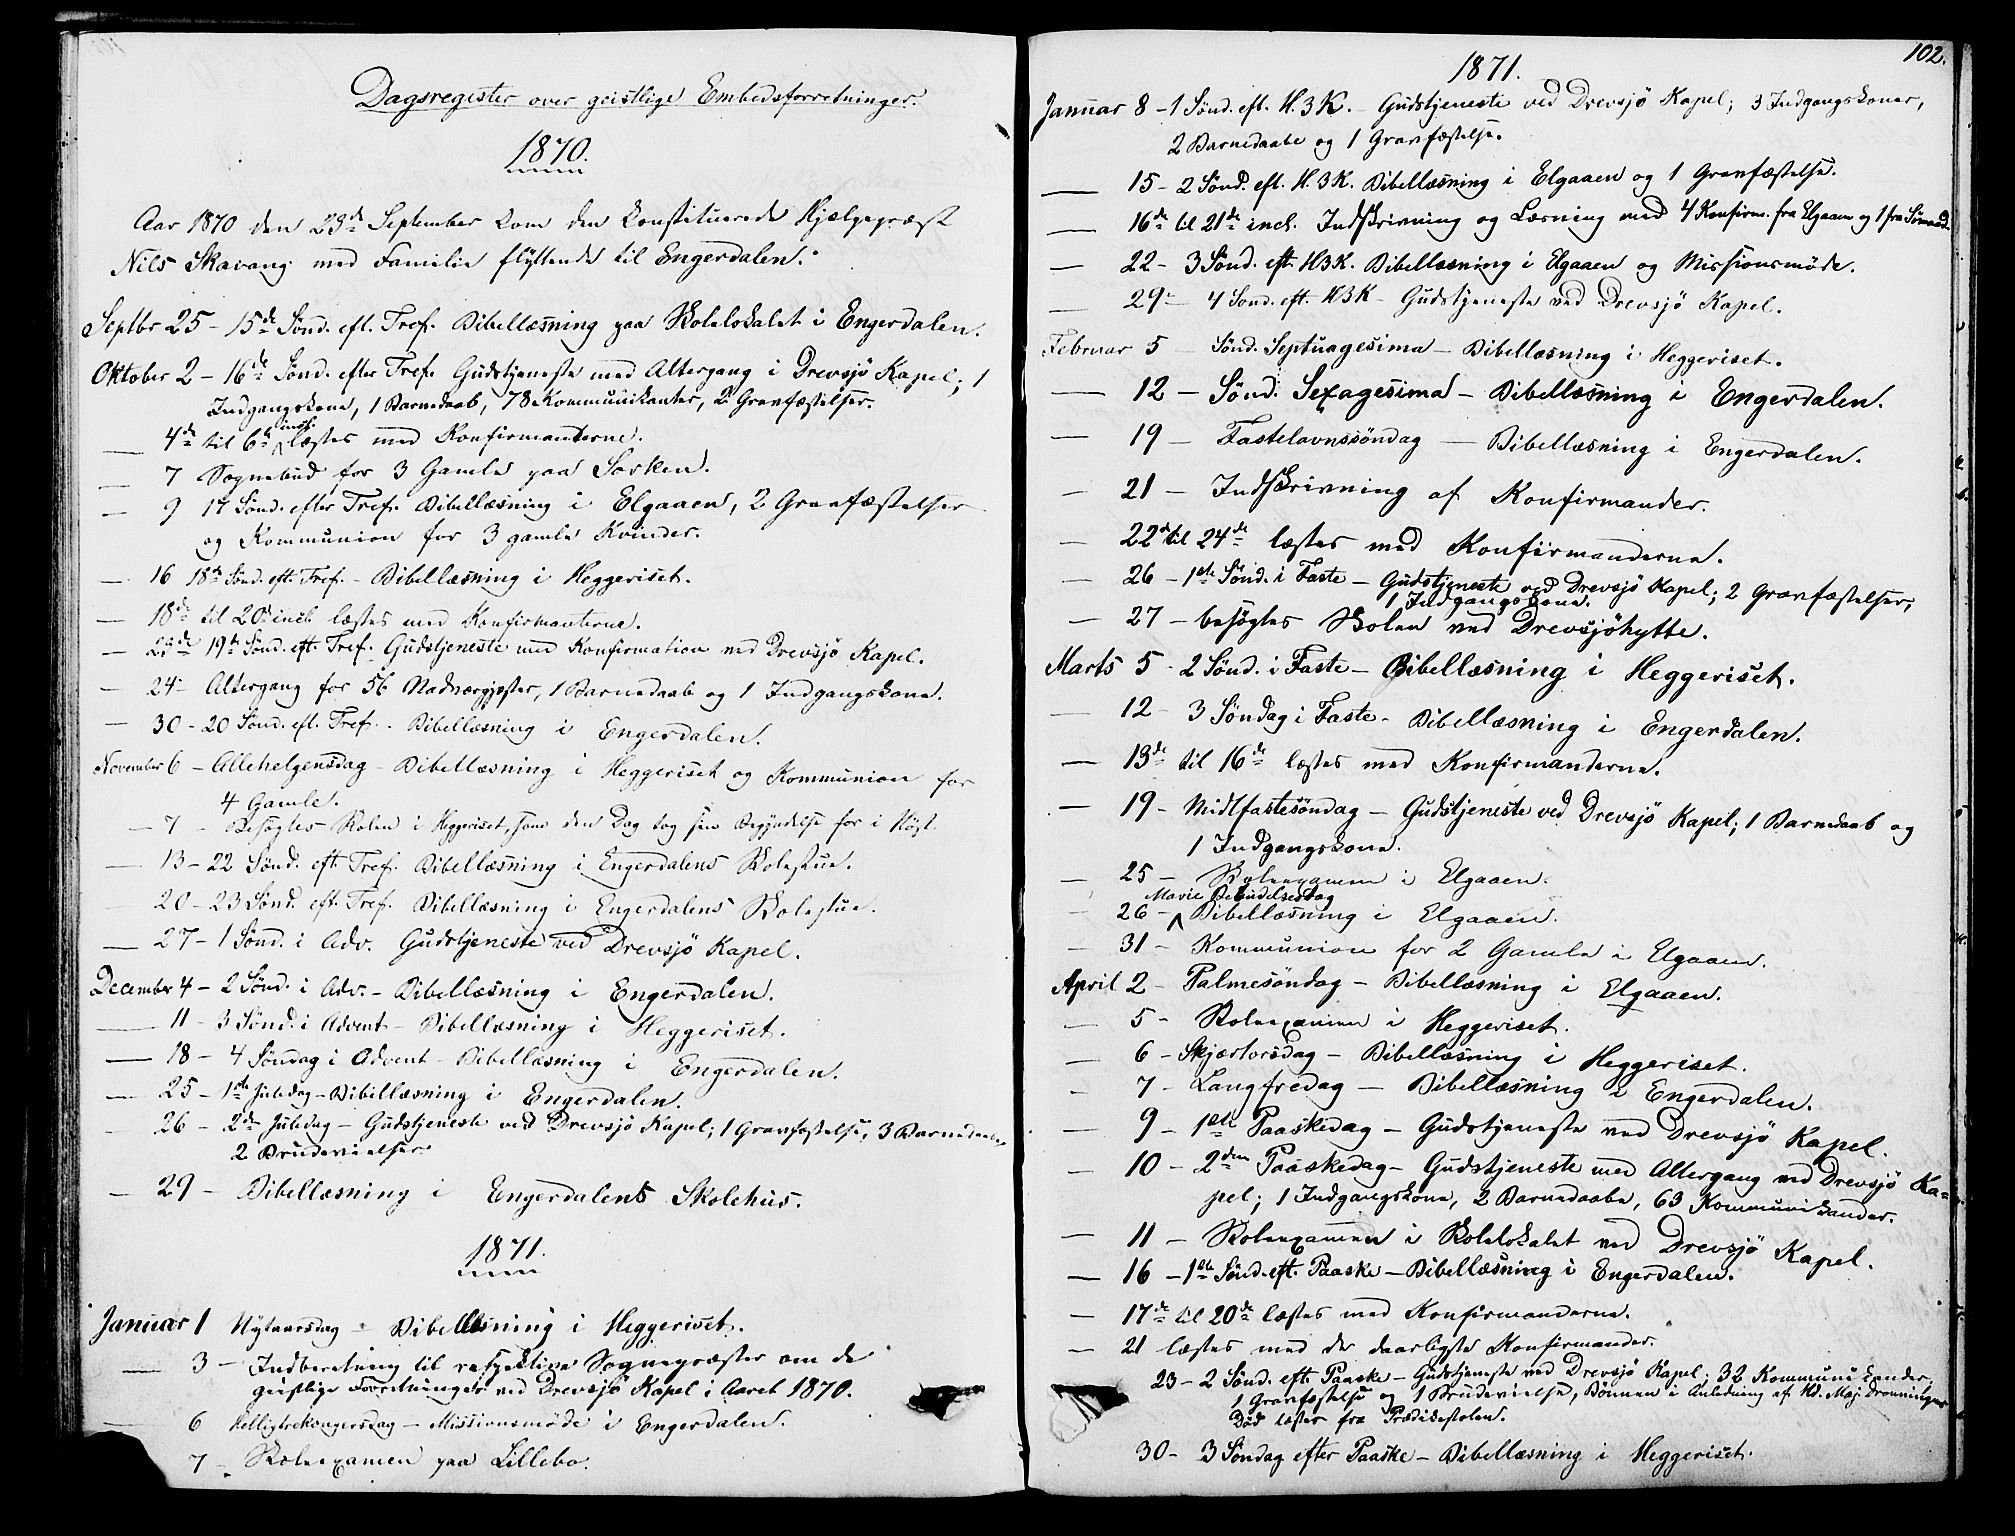 Dagsregister over geistlige Embedsforretninger.
1870.
Aar 1870 den 23de September kom den konstituerede Hjælpepræst
Nils Skavang med Familie flyttende til Engerdalen.
Septbr 25 - 15de Sønd. eft. Tref. Bibellæsning paa Skolelokalet i Engerdalen.
Oktober 2 - 16de Sønd. efter Tref. Gudstjeneste med Altergang i Drevsjö Kapel; 1
Indgangskone, 1 Barnedaab, 78 Kommunikanter, 2 Gravfæstelser.
— 4de til 6te incl. læstes med Konfirmanterne.
— 7 Sognebud for 3 Gamle paa Sorken.
— 9 17 Sønd. efter Tref. Bibellæsning i Elgaaen, 2 Gravfæstelser
og Kommunion for 3 gamle Kvinder.
— 16 18de Sønd. eft. Tref. - Bibellæsning i Heggeriset.
— 18de til 20de incl. læstes med Konfirmanterne.
— 23de 19de Sønd. eft. Tref. Gudstjeneste med Konfirmation ved Drevsjö Kapel.
— 24 - Altergang for 56 Nadvergjester, 1 Barnedaab og 1 Indgangskone.
— 30 - 20 Sønd. eft. Tref. - Bibellæsning i Engerdalen.
November 6 - Allehelgensdag - Bibellæsning i Heggeriset og Kommunion for
4 Gamle.
— 7 - Besøgtes Skolen i Heggeriset, som den Dag tog sin Begyndelse for i Høst.
— 13 - 22 Sønd. eft. Tref. Bibellæsning i Engerdalens Skolestue.
— 20 - 23 Sønd. eft. Tref. Bibellæsning i Engerdalens Skolestue.
— 27 - 1 Sønd. i Adv. Gudstjeneste ved Drevsjö Kapel.
December 4 - 2 Sønd. i Adv. - Bibellæsning i Engerdalen.
— 11 - 3 Sønd. i Advent - Bibellæsning i Heggeriset.
— 18 - 4 Søndag i Advent - Bibellæsning i Engerdalen.
— 25 - 1ste Juledag - Bibellæsning i Engerdalen.
— 26 - 2den Juledag - Gudstjeneste ved Drevsjö Kapel; 1 Gravfæstelse, 3 Barnedaabe
2 Brudevielser.
— 29 - Bibellæsning i Engerdalens Skolehus.
1871.
Januar 1 Nytaarsdag - Bibellæsning i Heggeriset.
— 3 - Indberetning til respektive Sognepræster om de
geistlige Forretninger ved Drevsjö Kapel i Aaret 1870.
— 6 Helligtrekongersdag - Missionsmøde i Engerdalen.
7 - Skoleexamen paa Lillebo.
102.
1871.
Januar 8 - 1 Sønd. eft. H. 3 K. - Gudstjeneste ved Drevsjö Kapel; 3 Indgangskoner,
2 Barnedaabe og 1 Gravfæstelse.
— 15 - 2 Sønd. eft. H. 3 K. Bibellæsning i Elgaaen og 1 Gravfæstelse.
— 16de til 21de incl. Indskrivning og Læsning med 4 Konfirm. fra Elgaaen og 1 fra
— 22 - 3 Sønd. eft. H3K. Bibellæsning i Elgaaen og Missionsmöde.
— 29 - 4 Sønd. eft. H3K - Gudstjeneste ved Drevsjö Kapel.
Februar 5 - Sønd. Septuagesima - Bibellæsning i Heggeriset.
— 12 - Sønd. Sexagesima - Bibellæsning i Engerdalen.
— 19 - Fastelavnssöndag - Bibellæsning i Engerdalen.
— 21 - Indskrivning af Konfirmander.
— 22de til 24de læstes med Konfirmanderne.
— 26 - 1ste Sønd. i Faste - Gudstjeneste ved Drevsjö Kapel; 2 Gravfæstelser,
1 Indgangskone.
— 27 - besøgtes Skolen ved Drevsjöhytte.
Marts 5 - 2 Sønd. i Faste - Bibellæsning i Heggeriset.
— 12 - 3 Söndag i Faste - Bibellæsning i Engerdalen.
— 13de til 16de læstes med Konfirmanderne.
— 19 - Midtfastesöndag - Gudstjeneste ved Drevsjö Kapel; 1 Barnedaab og
1 Indgangskone.
— 25 - Skoleexamen i Elgaaen.
Mariæ Bebudelsesdag
— 26 - Bibellæsning i Elgaaen.
— 31 - Kommunion for 2 Gamle i Elgaaen.
April 2 - Palmesöndag - Bibellæsning i Elgaaen.
— 5 - Skoleexamen i Heggeriset.
— 6 - Skjærtorsdag - Bibellæsning i Heggeriset.
— 7 - Langfredag - Bibellæsning i Engerdalen.
— 9 - 1ste Paaskedag - Gudstjeneste ved Drevsjö Kapel.
— 10 - 2den Paaskedag - Gudstjeneste med Altergang ved Drevsjö Ka=
pel; 1 Indgangskone, 2 Barnedaabe, 63 Kommunikander.
— 11 - Skoleexamen i Skolelokalet ved Drevsjö Kapel.
— 16 - 1ste Sønd. eft. Paaske - Bibellæsning i Engerdalen.
— 17de til 20de læstes med Konfirmanderne.
— 21 læstes med de daarligste Konfirmander.
23 - 2 Sønd. eft. Paaske - Gudstjeneste ved Drevsjö Kapel; 32 Kommunikander,
1 Gravfæstelse og 1 Brudevielse, Bönnen i Anledning af Hd. Maj. Dronningens
Död læstes fra Prædikestolen.
30 - 3 Söndag efter Paaske - Bibellæsning i Heggeriset.